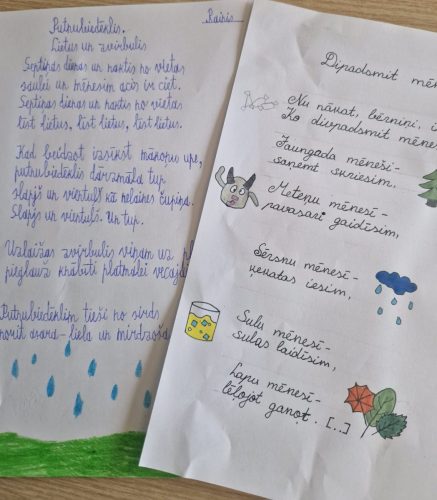 Rainis
Putnubiedēklis.
Lietus un zvirbulis
Septiņas dienas un naktis no vietas
saulei un mēnesim acis ir ciet.
Septiņas dienas un naktis no vietas
līst lietus, līst lietus, līst lietus.
Kad beidzot izsīkst mākoņu upe,
putnubiedēklis dārzmalā tup
slapjš un vientuļš kā nelaimes čupiņa.
Slapjš un vientuļš. Un tup.
Uzlaižas zvirbulis viņam uz
pieglauž knābīti platmalei
Putnubiedēklim tieši no sirds
norit asara - liela un mirdzoša
Divpadsmit
Nu nākat, bērniņi,
Ko divpadsmit
Jaungada mēnesī -
saņemt skriesim.
Meteņu mēnesī -
pavasari gaidīsim,
Sērsnu mēnesī -
ķekatas iesim,
Sulu mēnesī -
sulas laidīsim,
Lapu mēnesī -
teļojot ganot. [..]